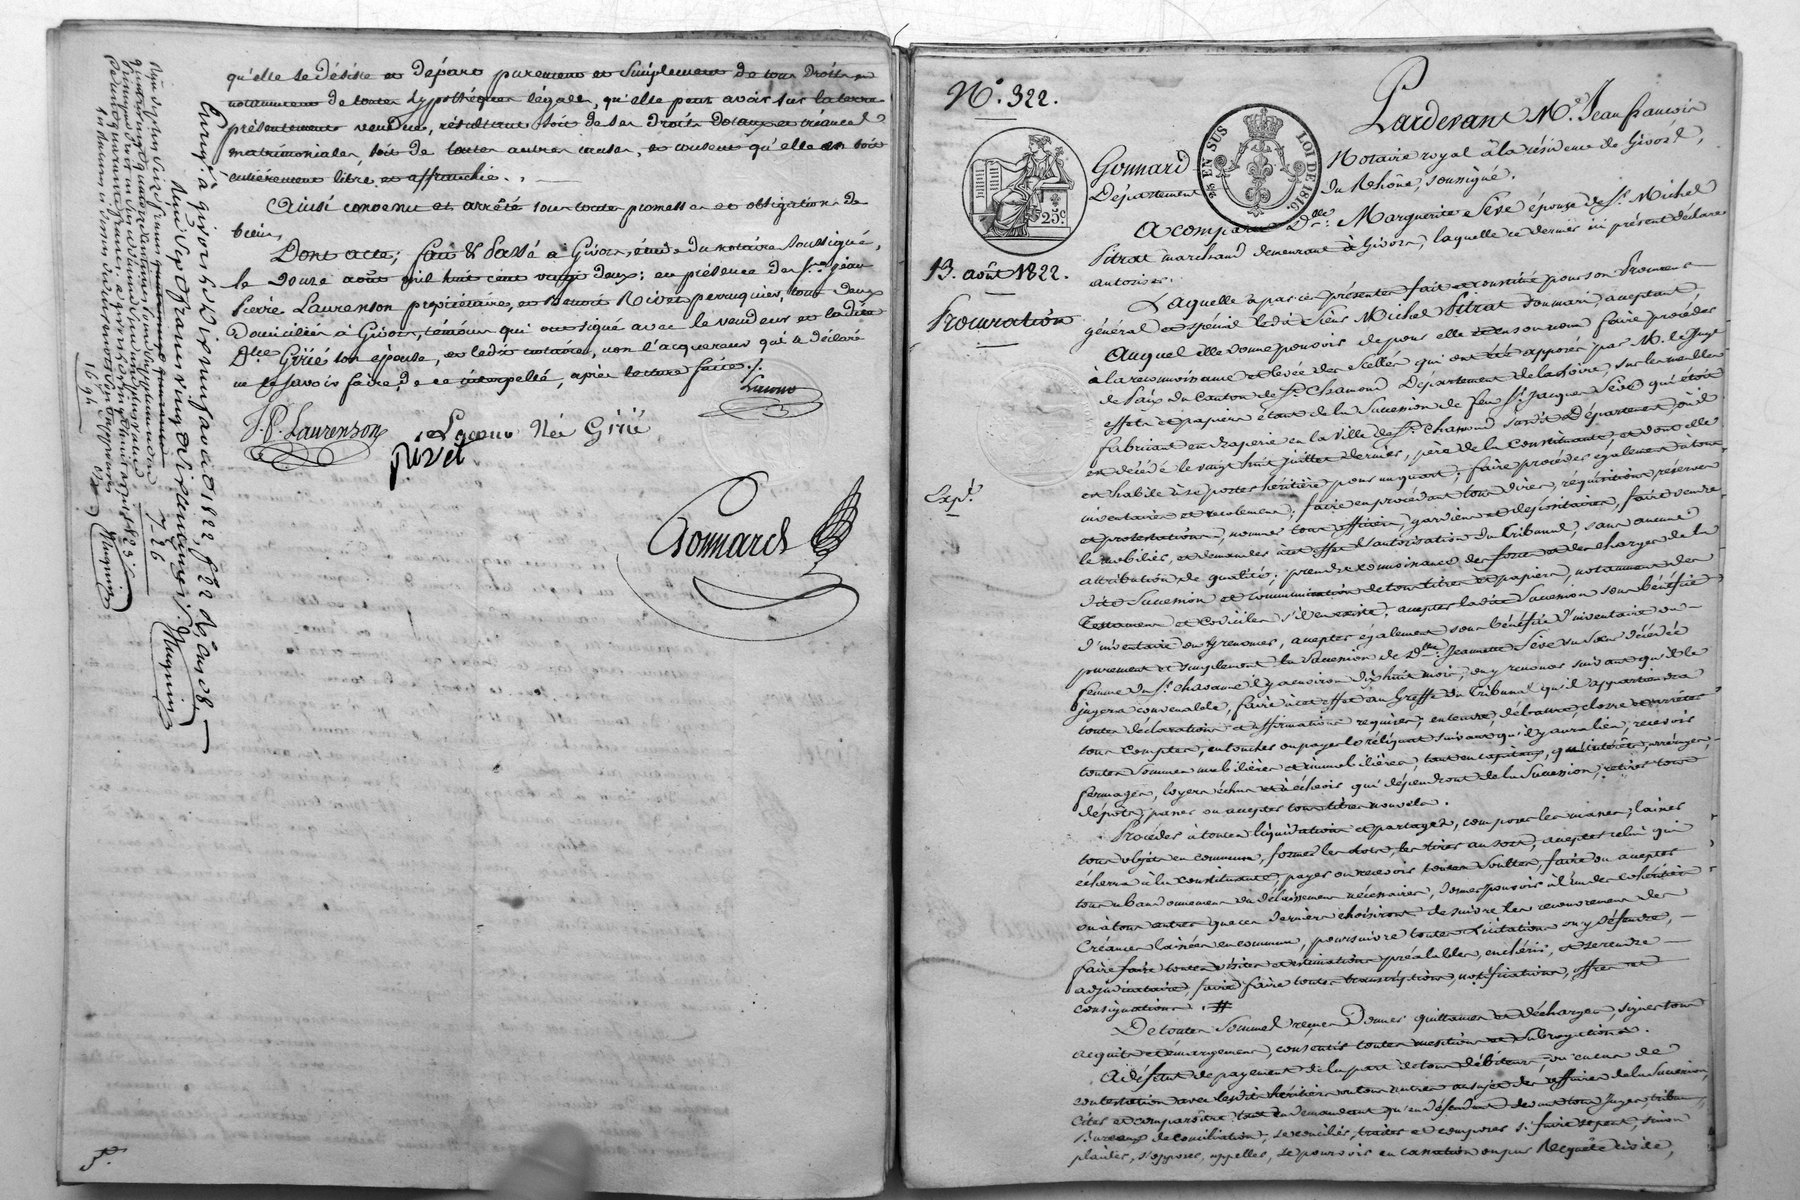 qu'elle se désiste et départ purement et simplement de tous droits et
notamment de toutes hypothèques légales, qu'elle peut avoir sur la terre
présentement vendue, résultant soit de ses droits dotaux et créances
matrimoniales, soit de toutes autres causes, et consent qu'elle en soit
entièrement libre et affranchie.
Ainsi convenu et arrêté sous toutes promesses et obligations de
biens,
Dont acte; fait & passé à Givors, étude du notaire soussigné,
le douze août mil huit cent vingt deux; en présence de Sr. Jean
Pierre Laurenson propriétaire, et Rivet perruquier, tous deux
domiciliés à Givors, témoins qui ont signé avec le vendeur et ladite
Dlle Girié son épouse, et ledit notaire, non l'acquéreur qui a déclaré
ne le savoir faire, de ce interpellé, après lecture faite.
J. P. Laurenson
Née Girié
Rivet
Gonnard
Enrgé à givors le Dix neuf août 1822, f°
Reçu Sept francs vingt Six centimes
Magnin
7, 26
Magnin
N°. 322.
25c
EN SUS
LOI DE 1816
13. août 1822.
Procuration
Exp.
Pardevant Me. Jean françois
Gonnard Notaire royal à la résidence de Givors,
Département du Rhône, soussigné.
A comparu Dlle. Marguerite Sève épouse de Sr. Michel
Pitrat marchand demeurant à Givors, laquelle ce dernier ici présent déclare
autoriser.
Laquelle a par ces présentes fait et constitué pour son Procureur
général et spécial ledit Sieur Michel Pitrat son mari acceptant,
Auquel elle donne pouvoir de pour elle et en son nom faire procéder
à la reconnaissance et levée des scellés qui ont été apposés par M. le Juge
de Paix du Canton de St. Chamond Département de la Loire, sur les meubles
effets et papiers étant de la Succession de feu Sr. Jacques Sève qui était
fabricant en Draperie en la Ville de St. Chamond susdit Département où il
est décédé le vingt huit juillet dernier, père de la constituante et dont elle
est habile à se porter héritière pour un quart; faire procéder également à tous
inventaires et récolements; faire en procédant tous dires, réquisitions, réserves
et protestations, nommer tous officiers, gardiens et dépositaires, faire vendre
le mobilier, et demander à cet effet l'autorisation du Tribunal, sans aucune
attribution de qualité; prendre connaissance des forces et des charges de la
dite Succession et communication de tous titres et papiers, notamment des
Testament et codiciles s'il en existe; accepter ladite Succession sous bénéfice
d'inventaire ou y renoncer, accepter également sous bénéfice d'inventaire ou
purement et simplement la Succession de Dlle. Jeannette Sève sa sœur décédée
femme du Sr. il y a environ dix huit mois, ou y renoncer suivant qu'il le
jugera convenable, faire à cet effet au Greffe du Tribunal qu'il appartiendra
toutes déclarations et affirmations requises, entendre, débattre, clore et arrêter
tous comptes, en toucher ou payer le reliquat suivant qu'il y aura lieu, recevoir
toutes sommes mobilières et immobilières, tant en capitaux, qu'intérêts, arrérages,
fermages, loyers échus et à échoir qui dépendront de la Succession, retirer tous
dépôts, passer ou accepter tous titres nouvels.
Procéder à toutes liquidations et partages, composer les masses, laisser
tous objets en commun, former les lots, les tirer au sort, accepter celui qui
écherra à la constituante, payer ou recevoir toutes soultes, faire ou accepter
tous abandonnements ou délaissements nécessaires, donner pouvoir à l'un des cohéritiers
ou à tous autres que ces derniers choisiront de suivre les recouvrements des
Créances laissées en commun, poursuivre toutes licitations ou y défendre,
faire faire toutes visites et estimations préalables, enchérir, et se rendre
adjudicataire, faire faire toutes transcriptions, notifications, offres et
consignations. #
De toutes Sommes reçues Donner quittances et décharges, signer tous
acquits et émargements, consentir toutes mentions et subrogations.
A défaut de payement de la part de tous débiteurs, ou en cas de
contestation avec lesdits héritiers ou tous autres au sujet des affaires de la Succession,
citer et comparaître tant en demandant qu'en défendant devant tous Juges, tribunaux
bureaux de conciliation, se concilier, traiter et composer si faire se peut, sinon
plaider, s'opposer, appeller, se pourvoir en cassation ou par Requête civile,